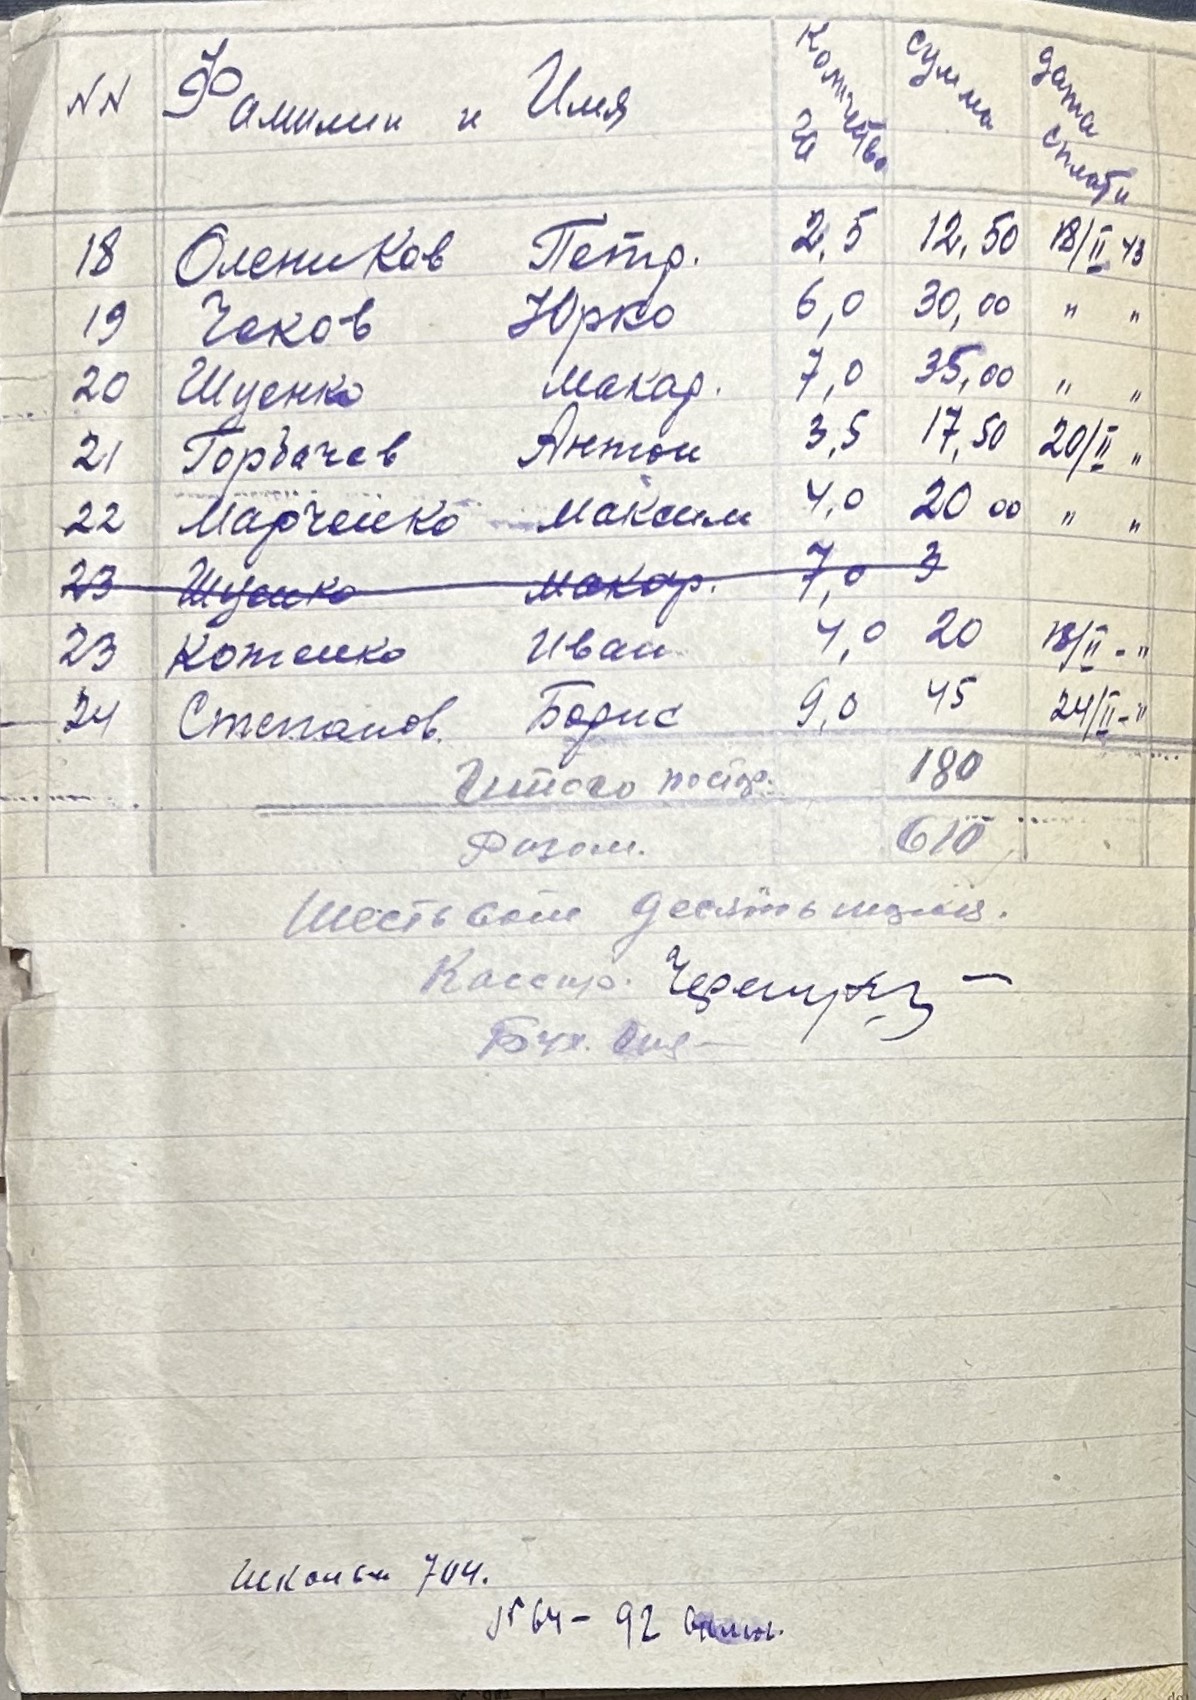 NN Фамилии и Имя Количество га сумма дата сплати
18 Олеников Петр. 2,5 12,50 18/II 43
19 Чеков Юрко 6,0 30,00 " "
20 Шуенко Макар. 7,0 35,00 " "
21 Горбачев Антон 3,5 17,50 20/II "
22 Марченко Максим 4,0 20 00 " "
23 Шуенко Макар. 7,0 3
23 Котенко Иван 4,0 20 18/II - "
24 Степанов. Борис 9,0 45 24/II - "
Итого 180
Разом. 610
Шестьсот десять
Кассир.
Бух.
704.
№ 64 - 92